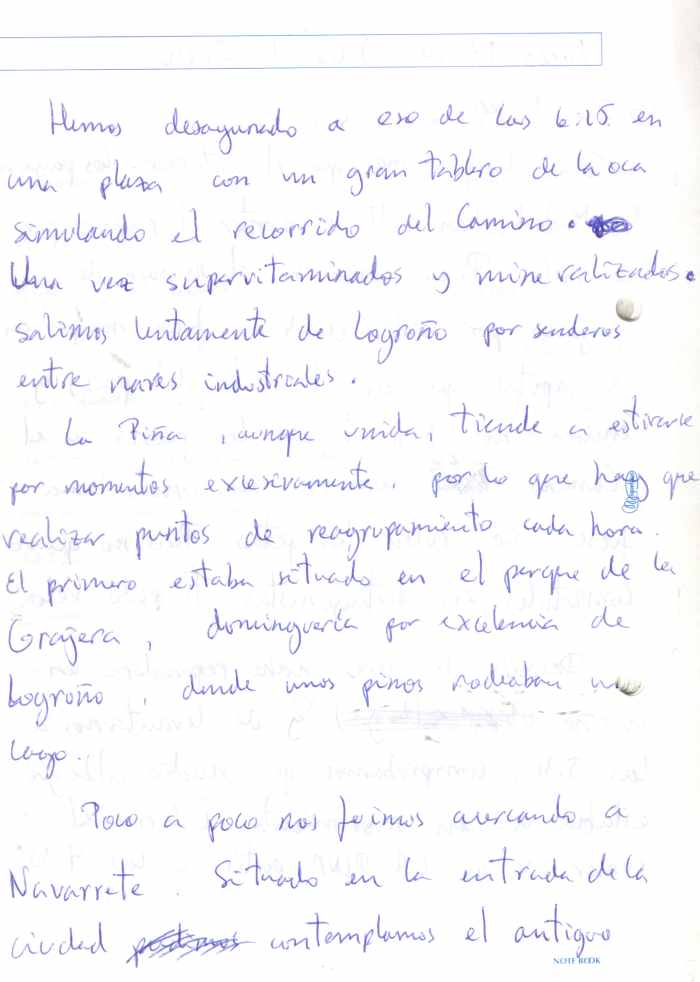 Hemos desayunado a eso de las 6:15 en
una plaza con un gran tablero de la oca
simulando el recorrido del Camino.
Una vez supervitaminados y mineralizados.
salimos lentamente de Logroño por senderos
entre naves industriales.
La Piña, aunque unida, tiende a estirarse
por momentos excesivamente, por lo que hay que
realizar puntos de reagrupamiento cada hora.
El primero estaba situado en el parque de la
Grajera, dominguería por excelencia de
Logroño, donde unos pinos rodeaban un
lago.
Poco a poco nos fuimos acercando a
Navarrete. Situado en la entrada de la
ciudad contemplamos el antiguo
NOTE BOOK